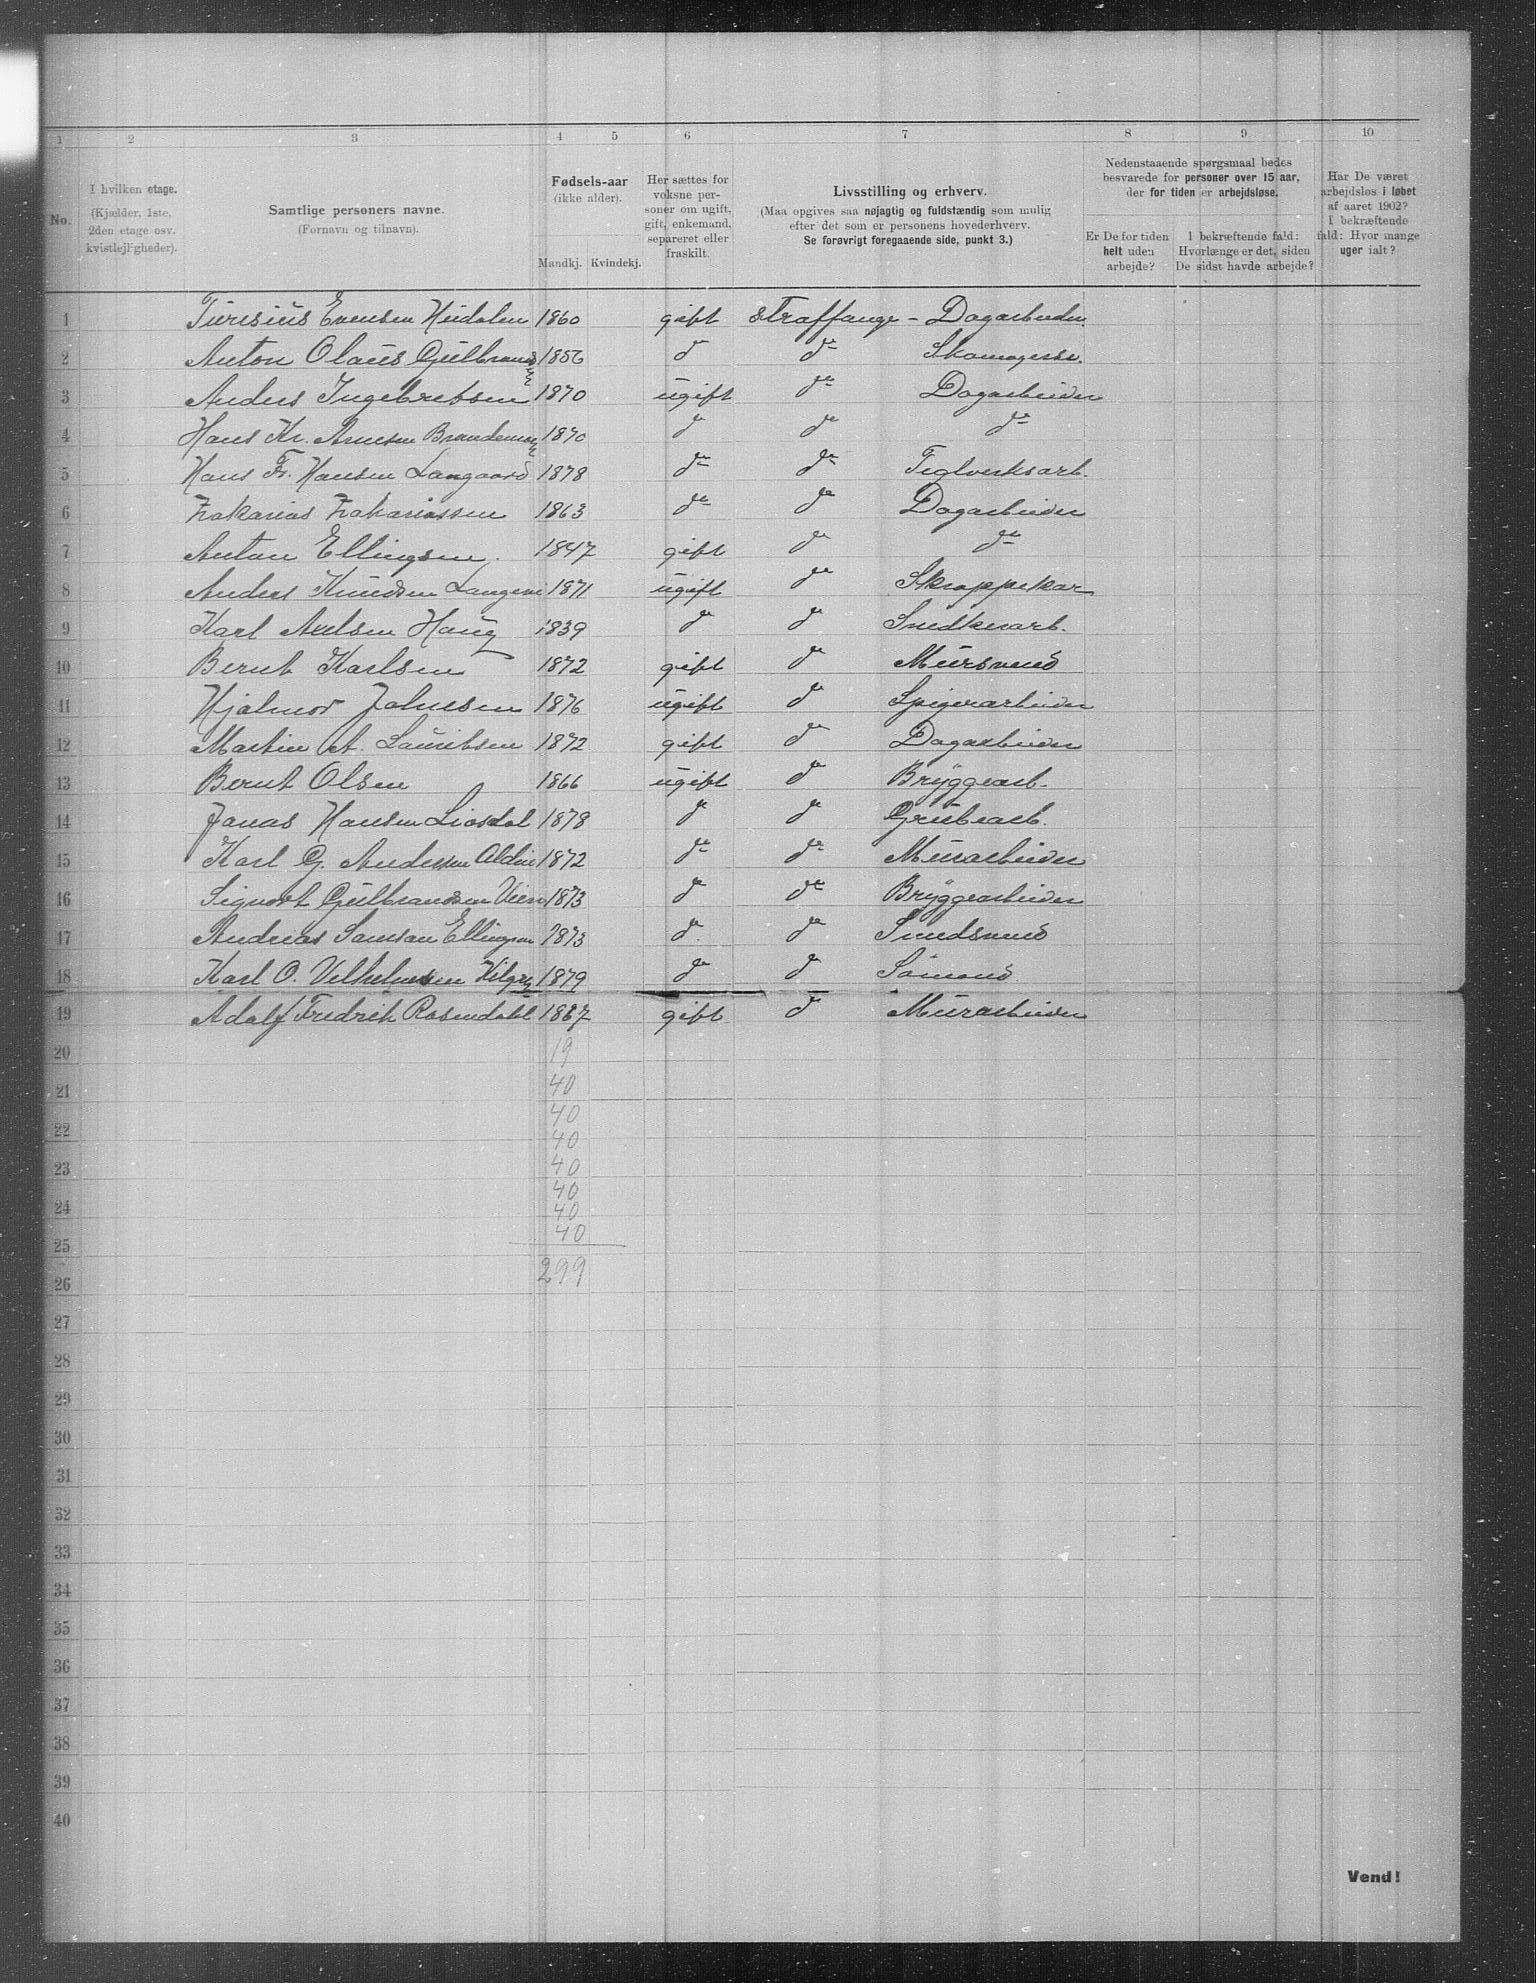 1 2 3 4 5 6 7 8 9 10
No.
I hvilken etage.
(Kjælder, 1ste,
2den etage osv.
kvistlejligheder).
Samtlige personers navne.
(Fornavn og tilnavn).
Fødsels-aar
(ikke alder).
Mandkj. Kvindekj.
Her sættes for
voksne per-
soner om ugift,
gift, enkemand,
separeret eller
fraskilt.
Livsstilling og erhverv.
(Maa opgives saa nøjagtig og fuldstændig som mulig
efter det som er personens hovederhverv.
Se forøvrigt foregaaende side, punkt 3.)
Nedenstaaende spørgsmaal bedes
besvarede for personer over 15 aar,
der for tiden er arbejdsløse.
Er De for tiden
helt uden
arbejde?
I bekræftende fald:
Hvorlænge er det, siden
De sidst havde arbejde?
Har De været
arbejdsløs i løbet
af aaret 1902?
I bekræftende
fald: Hvor mange
uger ialt?
1 Turesius Evensen Heidalen 1860 gift Straffange - Dagarbeider
2 Anton Olaus Gulbrands 1856 d do Skomagersv.
3 Anders Ingebretsen 1870 ugift do Dagarbeider
4 Hans Kr. Arnesen 1870 do do do
5 Hans Fr. Hansen Langaard 1878 do do Teglverksarb.
6 Zakarias Zakariassen 1863 do do Dagarbeider
7 Anton Ellingsen 1847 gift do do
8 Anders Knudsen 1871 ugift do Skrappekar
9 Karl Axelsen Haug 1839 do do Snedkerarb.
10 Bernt Karlsen 1872 gift do Mursvend
11 Hjalmar Johnsen 1876 ugift do Spigerarbeider
12 Martin A. Lauritsen 1872 gift do Dagarbeider
13 Bernt Olsen 1866 ugift do Bryggearb.
14 Jonas Hansen Liosdal 1878 do do Grubearb.
15 Karl G. Andersen 1872 do do Murarbeider
16 Sigvart Gulbrandsen 1873 do do Bryggearbeider
17 Andreas Samson Ellingsen 1873 do do Smedsvend
18 Karl O. Velhelmsen 1879 do do Sömand
19 Adolf Fredrik Rosendahl 1867 gift do Murarbeider
20 19
21 40
40
22 40
23 40
40
24 40
25 40
26 299
27
28
29
30
31
32
33
34
35
36
37
38
39
40
Vend!